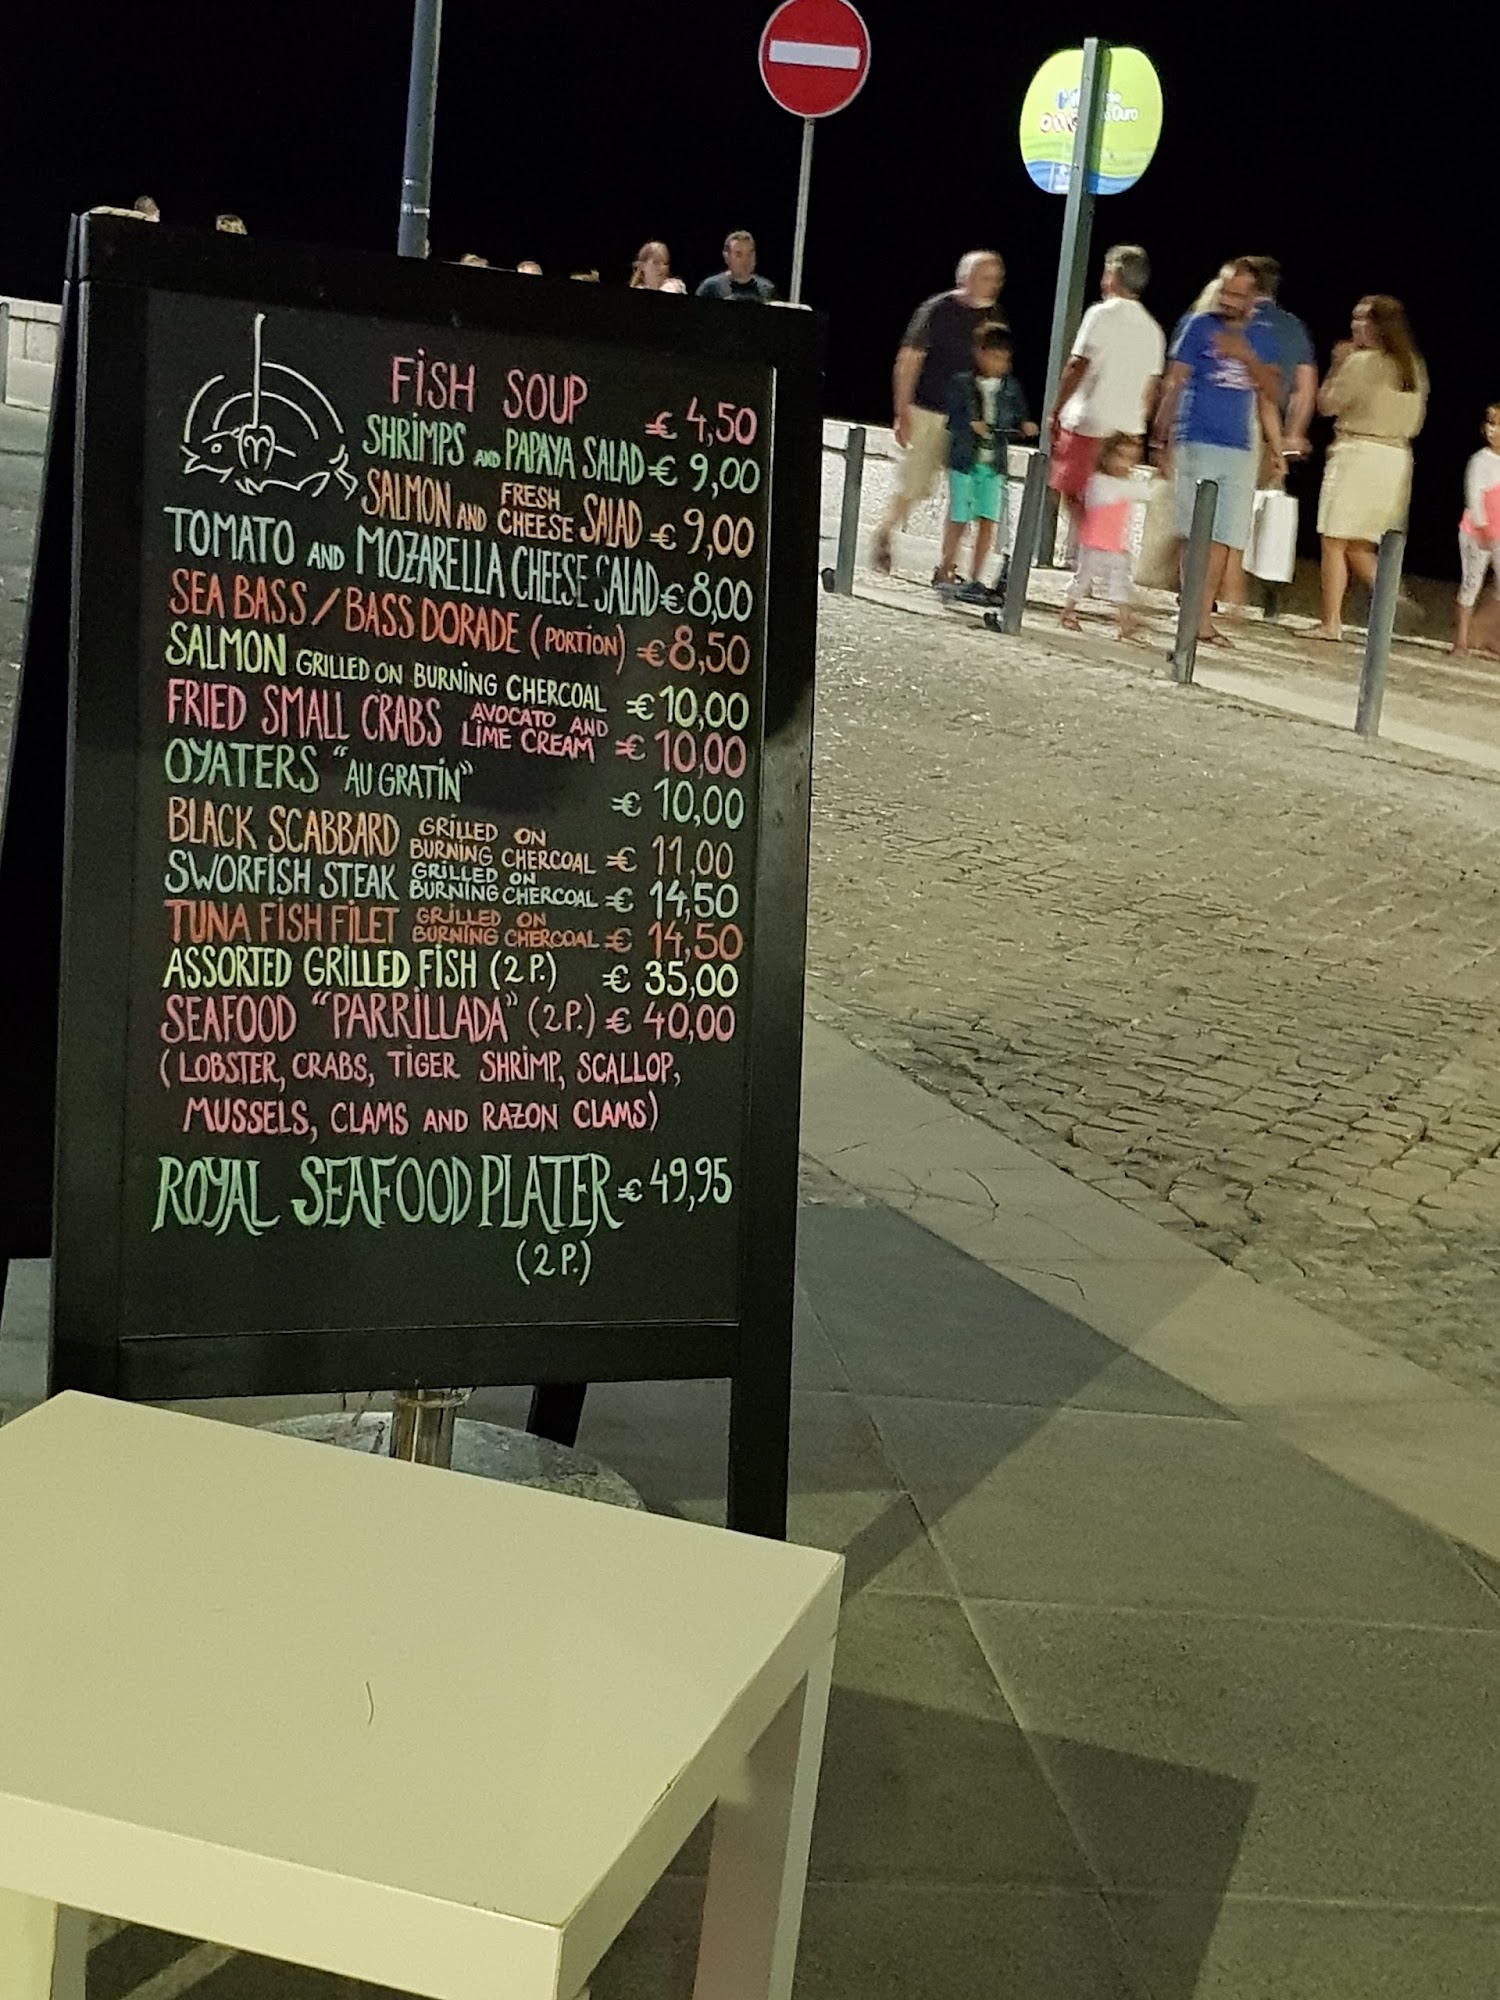 FISH SOUP € 4,50
SHRIMPS AND PAPAYA SALAD € 9,00
SALMON AND FRESH CHEESE SALAD € 9,00
TOMATO AND MOZARELLA CHEESE SALAD € 8,00
SEA BASS / BASS DORADE (PORTION) € 8,50
SALMON GRILLED ON BURNING CHERCOAL € 10,00
FRIED SMALL CRABS AVOCATO AND LIME CREAM € 10,00
OYATERS "AU GRATIN" € 10,00
BLACK SCABBARD GRILLED ON BURNING CHERCOAL € 11,00
SWORFISH STEAK GRILLED ON BURNING CHERCOAL € 14,50
TUNA FISH FILET GRILLED ON BURNING CHERCOAL € 14,50
ASSORTED GRILLED FISH (2 P.) € 35,00
SEAFOOD "PARRILLADA" (2 P.) € 40,00
(LOBSTER, CRABS, TIGER SHRIMP, SCALLOP,
MUSSELS, CLAMS AND RAZON CLAMS)
ROYAL SEAFOOD PLATER € 49,95
(2 P.)
Ouro